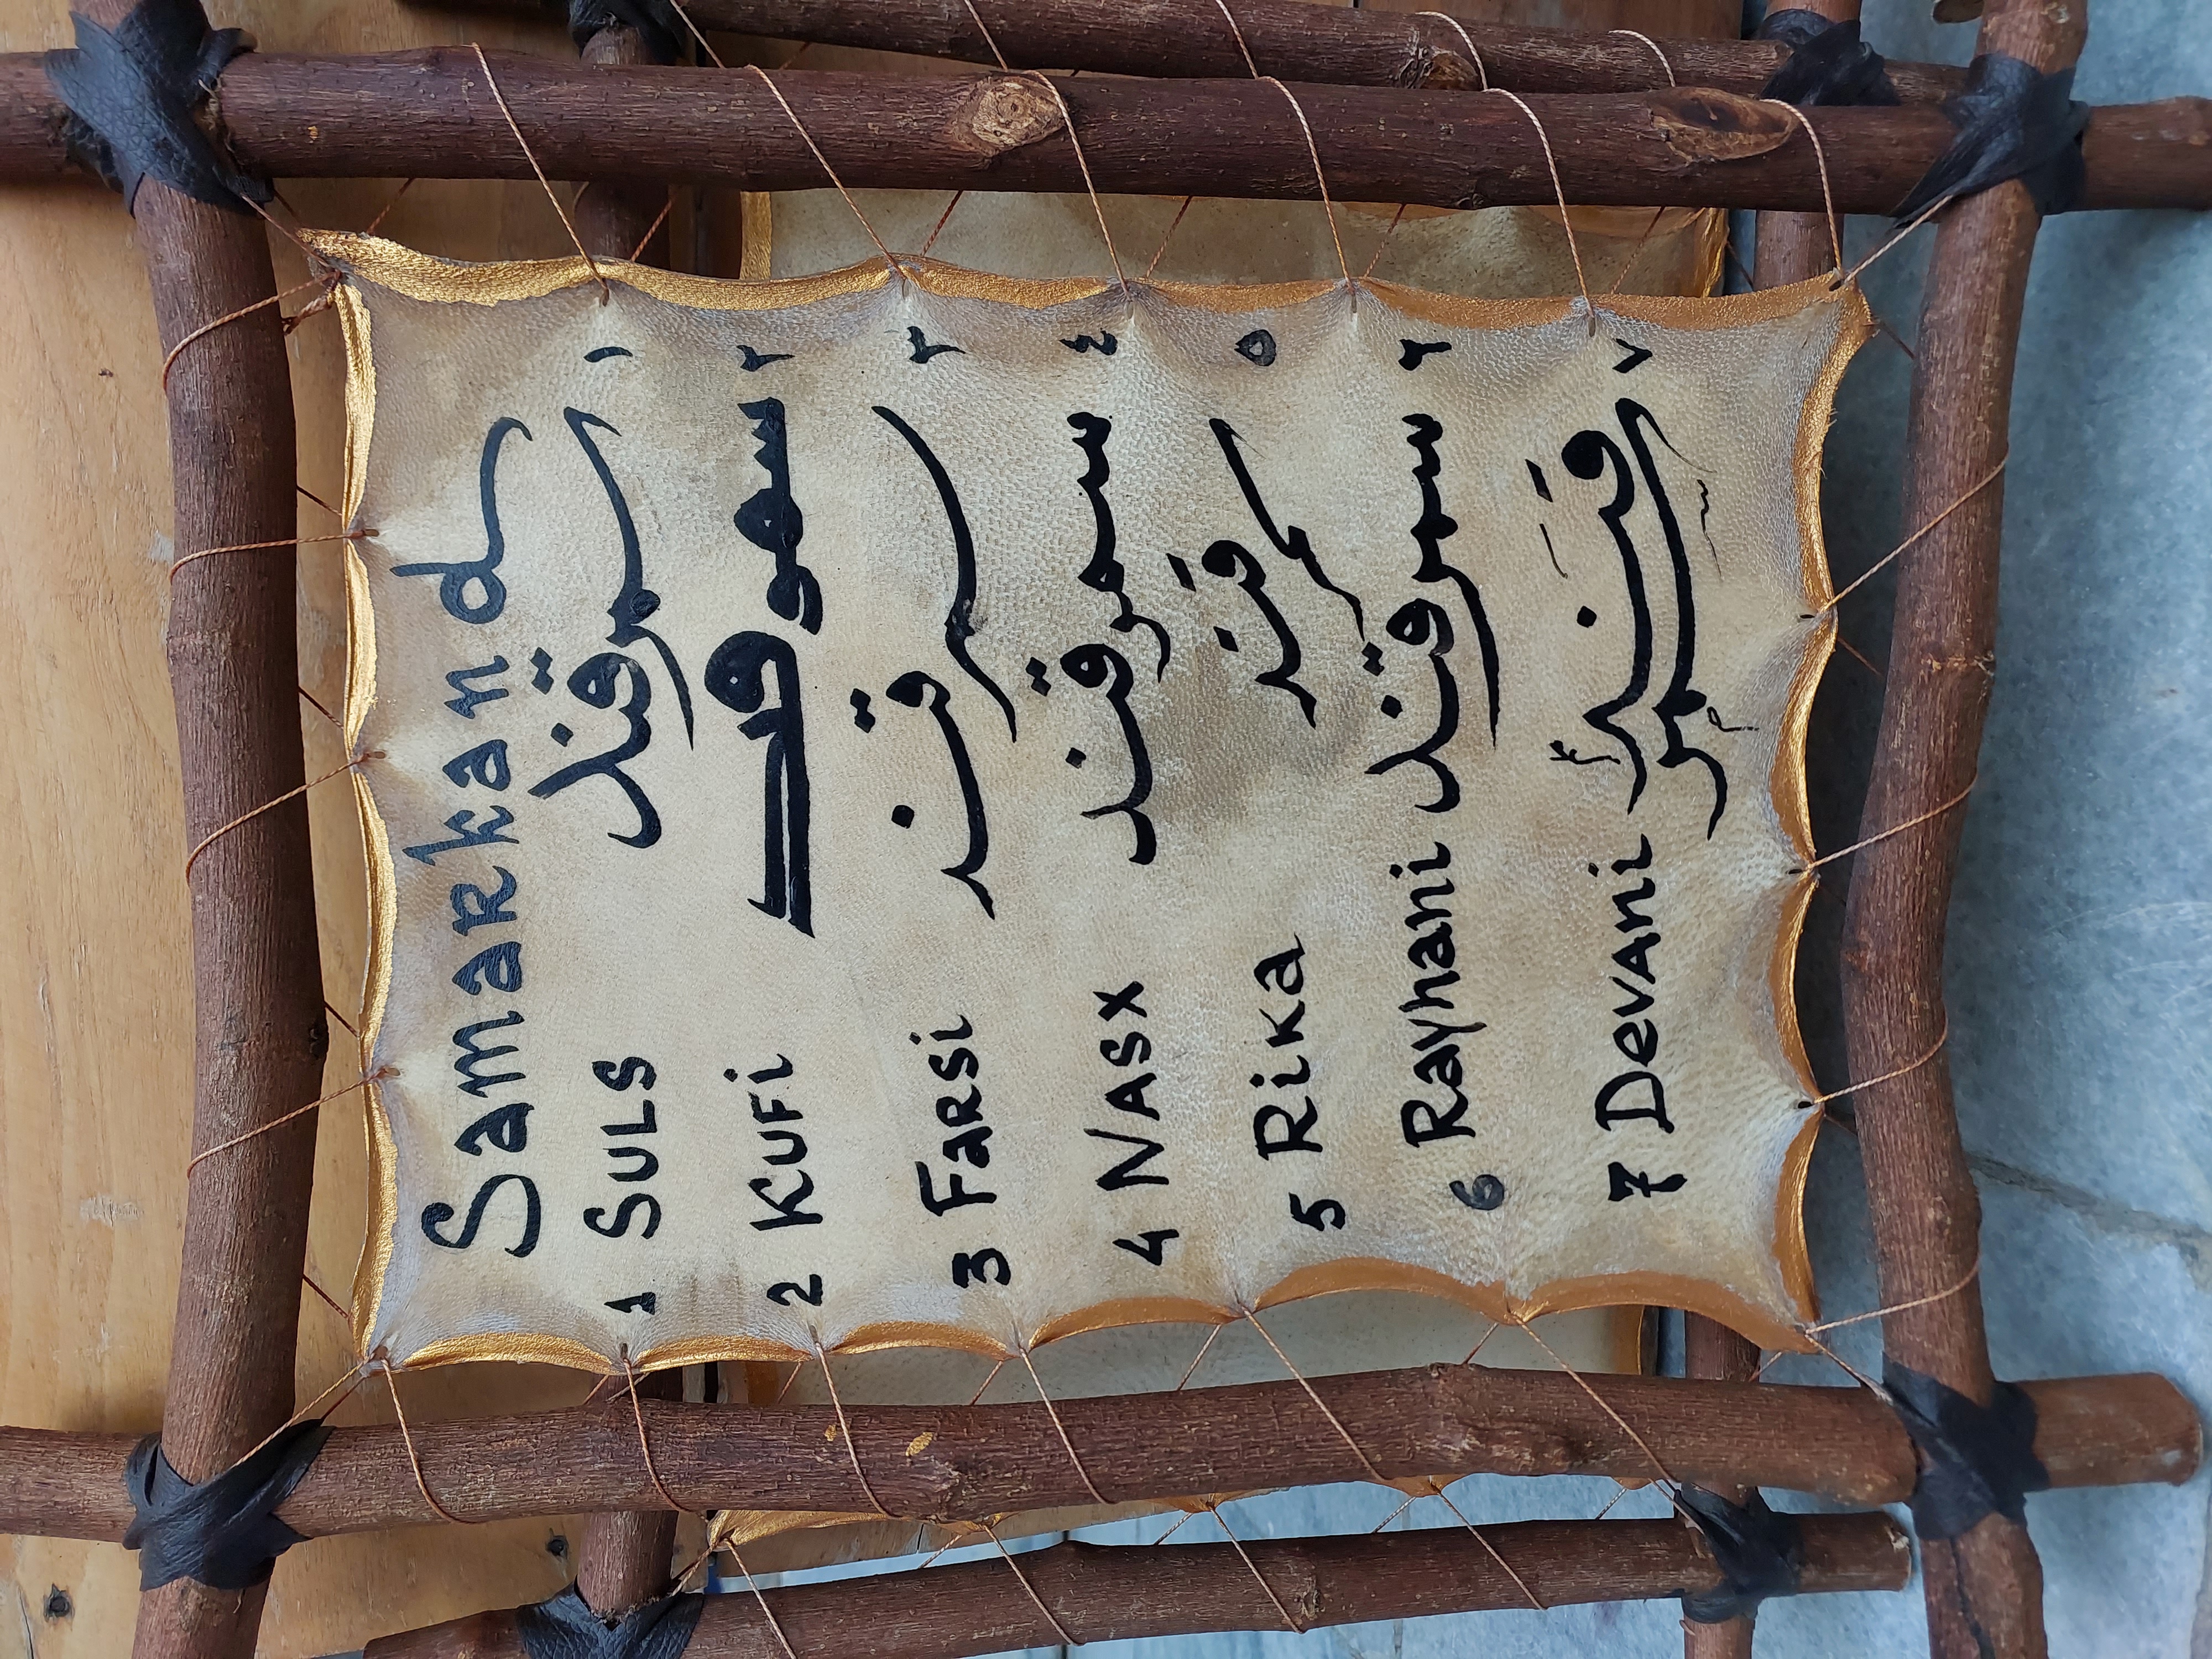 Samarkand
1 SULS سمرقند ١
2 KUFi سمرقند ٢
3 FARSi سمرقند ٣
4 NASX سمرقند ٤
5 Rika سمرقند ٥
6 Rayhani سمرقند ٦
7 DevANi سمرقند ٧